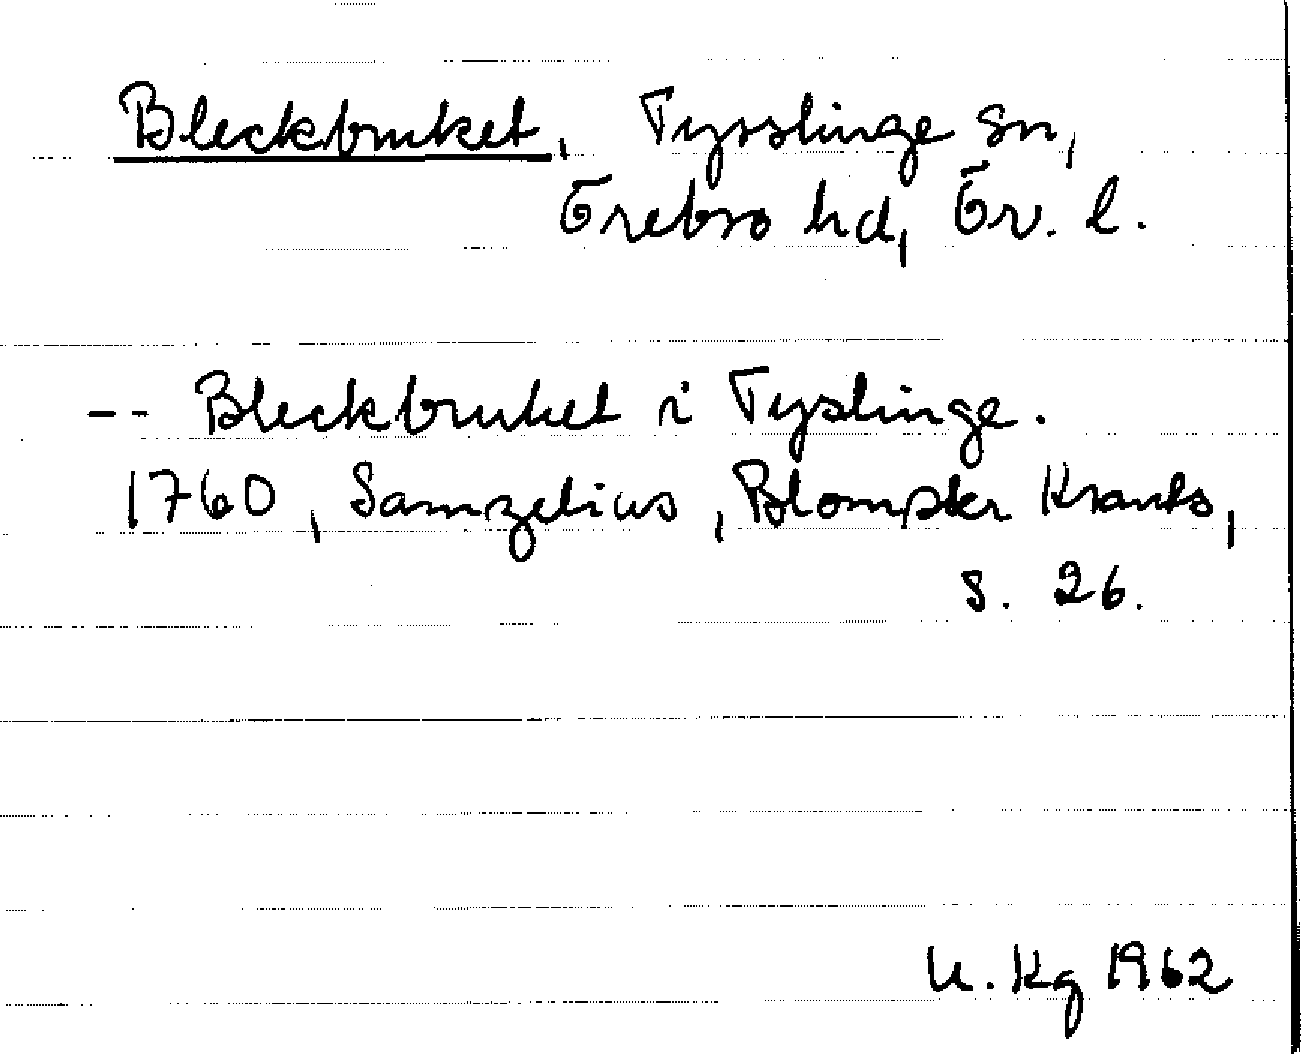 Bleckbruket, Tysslinge sn,
Örebro hd, Ör. l.
-- Bleckbruket i Tyslinge.
1760, Samzelius, Blomster Krants,
s. 26.
U. Kg 1962